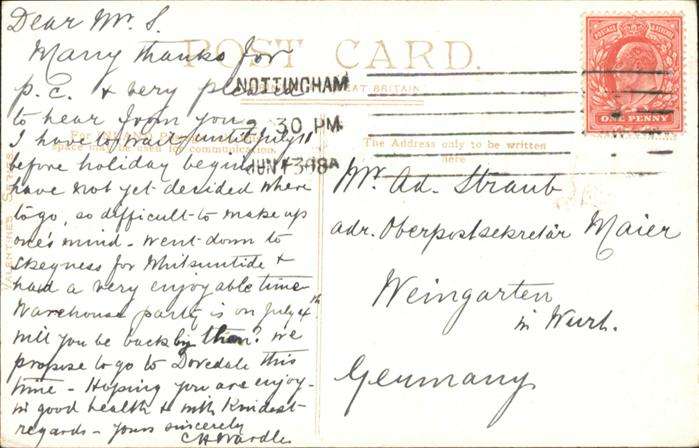 Dear Mr. S.
Many thanks for
p.c. & very pleased
to hear from you
I have to wait until July 11
before holiday begins &
have not yet decided where
to go, so difficult to make up
one's mind - Went down to
Skegness for Whitsuntide &
had a very enjoyable time
Warehouse party is on July 4th
will you be back by then? We
propose to go to Dovedale this
time - Hoping you are enjoy-
in good health & with Kindest
regards - Yours sincerely
C H Wardle
POST CARD.
GREAT BRITAIN
For
space may be used for communication.
The Address only to be written
here
VALENTINES SERIES
NOTTINGHAM
2 30 PM
JUN 13 08A
POSTAGE REVENUE
ONE PENNY
Mr. Ad. Straub
adr. Oberpostsekretär Maier
Weingarten
in Wurt.
Germany